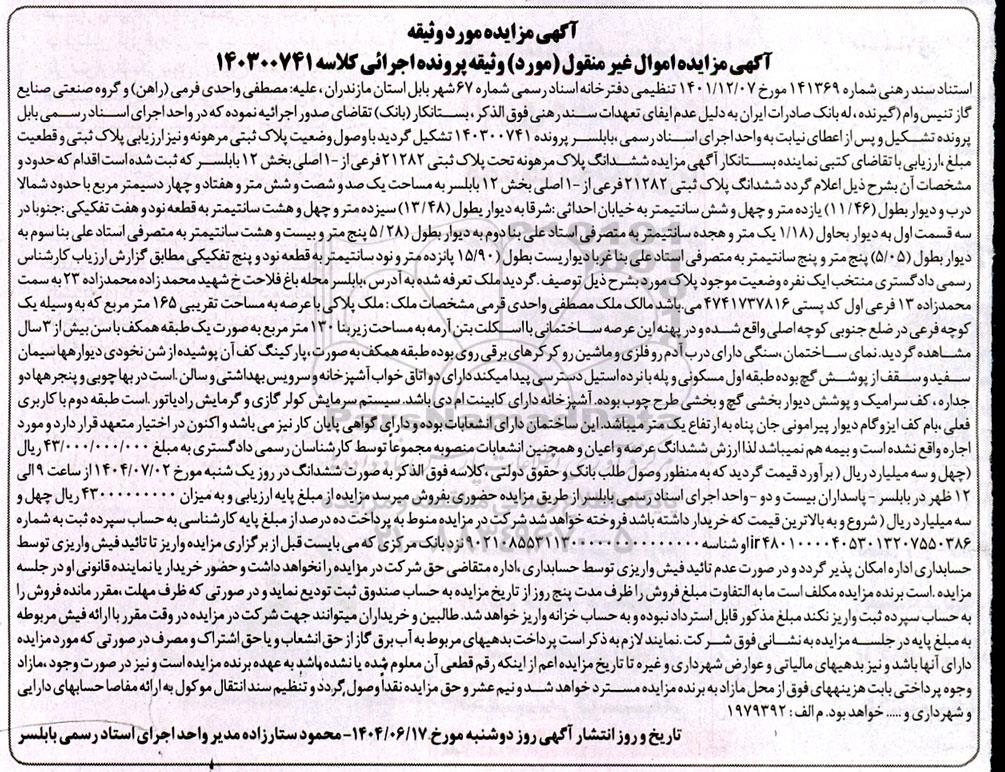 آگهی مزایده مورد وثیقه
آگهی مزایده اموال غیر منقول (مورد) وثیقه پرونده اجرائی کلاسه ۱۴۰۳۰۰۷۴۱
استناد سند رهنی شماره ۱۴۱۳۶۹ مورخ ۱۴۰۱/۱۲/۰۷ تنظیمی دفترخانه اسناد رسمی شماره ۶۷ شهر بابل استان مازندران ، علیه: مصطفی واحدی قرمی (راهن) و گروه صنعتی صنایع
گاز تنیس وام (گیرنده ، له بانک صادرات ایران به دلیل عدم ایفای تعهدات سند رهنی فوق الذکر ، بستانکار (بانک) تقاضای صدور اجرائیه نموده که در واحد اجرای اسناد رسمی بابل
پرونده تشکیل و پس از اعطای نیابت به واحد اجرای اسناد رسمی ،بابلسر پرونده ۱۴۰۳۰۰۷۴۱ تشکیل گردید با وصول وضعیت پلاک ثبتی مرهونه و نیز ارزیابی پلاک ثبتی و قطعیت
مبلغ ،ارزیابی با تقاضای کتبی نماینده بستانکار آگهی مزایده ششدانگ پلاک مرهونه تحت پلاک ثبتی ۲۱۲۸۲ فرعی از -۱ اصلی بخش ۱۲ بابلسر که ثبت شده است اقدام که حدود و
مشخصات آن بشرح ذیل اعلام گردد ششدانگ پلاک ثبتی ۲۱۲۸۲ فرعی از -۱ اصلی بخش ۱۲ بابلسر به مساحت یک صد و شصت و شش متر و هفتاد و چهار دسیمتر مربع با حدود شمالا
درب و دیوار بطول (۱۱/۴۶) یازده متر و چهل و شش سانتیمتر به خیابان احداثی :شرقا به دیوار بطول (۱۳/۴۸) سیزده متر و چهل و هشت سانتیمتر به قطعه نود و هفت تفکیکی :جنوبا در
سه قسمت اول به دیوار بحاول (۱/۱۸ یک متر و هجده سانتیمتر به متصرفی استاد علی بنا دوم به دیوار بطول (۵/۲۸ پنج متر و بیست و هشت سانتیمتر به متصرفی استاد علی بنا سوم به
دیوار بطول (۵/۰۵) پنج متر و پنج سانتیمتر به متصرفی استاد علی بنا غربا دیواریست بطول (۱۵/۹۰ پانزده متر و نود سانتیمتر به قطعه نود و پنج تفکیکی مطابق گزارش ارزیاب کارشناس
رسمی دادگستری منتخب ایک نفره وضعیت موجود پلاک مورد بشرح ذیل توصیف .گردید ملک تعرفه شده به آدرس ،بابلسر محله باغ فلاحت خ شهید محمد زاده محمدزاده ۲۳ به سمت
محمدزاده ۱۳ فرعی اول کد پستی ۴۷۴۱۷۳۷۸۱۶ می باشد مالک ملک مصطفی واحدی قرمی مشخصات ملک : ملک پلاکی با عرصه به مساحت تقریبی ۱۶۵ متر مربع که به وسیله یک
کوچه فرعی در ضلع جنوبی کوچه اصلی واقع شده و در پهنه این عرصه ساختمانی با اسکلت بتن آرمه به مساحت زیربنا ۱۳۰ متر مربع به صورت یک طبقه همکف با سن بیش از ۳ سال
مشاهده گردید. نمای ساختمان ،سنگی دارای درب آدم رو فلزی و ماشین رو کرکرهای برقی روی بوده طبقه همکف به صورت ،پارکینگ کف آن پوشیده از شن نخودی دیوارها سیمان
سفید و سقف از پوشش گچ بوده طبقه اول مسکونی و پله با نرده استیل دسترسی پیدا میکند دارای دو اتاق خواب آشپزخانه و سرویس بهداشتی و سالن .است دربها چوبی و پنجره‌ها دو
جداره ، کف سرامیک و پوشش دیوار بخشی گچ و بخشی طرح چوب بوده. آشپزخانه دارای کابینت ام دی باشد. سیستم سرمایش کولر گازی و گرمایش رادیاتور .است طبقه دوم با کاربری
فعلی ،بام کف ایزوگام دیوار پیرامونی جان پناه به ارتفاع یک متر میباشد. این ساختمان دارای انشعابات بوده و دارای گواهی پایان کار نیز می باشد و اکنون در اختیار متعهد قرار دارد و مورد
اجاره واقع نشده است و بیمه هم نمیباشد لذا ارزش ششدانگ عرصه و اعیان و همچنین انشعابات منصوبه مجموعاً توسط کارشناسان رسمی دادگستری به مبلغ ۴۳/۰۰۰/۰۰۰/۰۰۰ ریال
(چهل و سه میلیارد ریال ( برآورد قیمت گردید که به منظور وصول طلب بانک و حقوق دولتی ، کلاسه فوق الذکر به صورت ششدانگ در روز یک شنبه مورخ ۱۴۰۴/۰۷/۰۲ از ساعت ۹ الی
۱۲ ظهر در بابلسر - پاسداران بیست و دو - واحد اجرای اسناد رسمی بابلسر از طریق مزایده حضوری بفروش میرسد مزایده از مبلغ پایه ارزیابی و به میزان ۴۳۰۰۰۰۰۰۰۰۰ ریال چهل و
سه میلیارد ریال ( شروع و به بالاترین قیمت که خریدار داشته باشد فروخته خواهد شد شرکت در مزایده منوط به پرداخت ده درصد از مبلغ پایه کارشناسی به حساب سپرده ثبت به شماره
حسابداری اداره امکان پذیر گردد و در صورت عدم تائید فیش واریزی توسط حسابداری ،اداره متقاضی حق شرکت در مزایده را نخواهد داشت و حضور خریدار یا نماینده قانونی او در جلسه
مزایده .است برنده مزایده مکلف است ما به التفاوت مبلغ فروش را ظرف مدت پنج روز از تاریخ مزایده به حساب صندوق ثبت تودیع نماید و در صورتی که ظرف مهلت ،مقرر مانده فروش را
به حساب سپرده ثبت واریز نکند مبلغ مذکور قابل استرداد نبوده و به حساب خزانه واریز خواهد شد. طالبین و خریداران میتوانند جهت شرکت در مزایده در وقت مقرر با ارائه فیش مربوطه
به مبلغ پایه در جلسه مزایده به نشانی فوق شرکت .نمایند لازم به ذکر است پرداخت بدهیهای مربوط به آب برق گاز از حق انشعاب و یا حق اشتراک و مصرف در صورتی که مورد مزایده
دارای آنها باشد و نیز بدهیهای مالیاتی و عوارض شهرداری و غیره تا تاریخ مزایده اعم از اینکه رقم قطعی آن معلوم شده یا نشده باشد به عهده برنده مزایده است و نیز در صورت وجود ،مازاد
وجوه پرداختی بابت هزینههای فوق از محل مازاد به برنده مزایده مسترد خواهد شد و نیم عشر و حق مزایده نقداً وصول گردد و تنظیم سند انتقال موکول به ارائه مفاصا حسابهای دارایی
و شهرداری و ..... خواهد بود. م الف : ۱۹۷۹۳۹۲
تاریخ و روز انتشار آگهی روز دوشنبه مورخ ۱۴۰۴/۰۶/۱۷- محمود ستارزاده مدیر واحد اجرای اسناد رسمی بابلسر
ParsNamadData